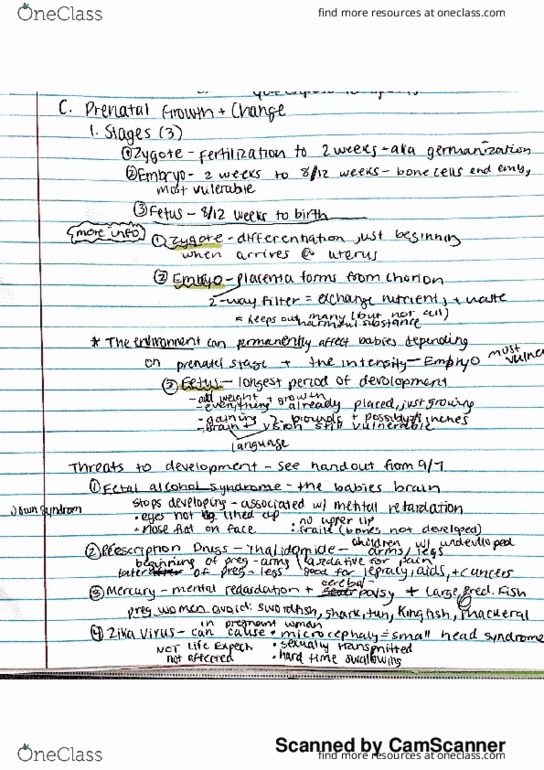 OneClass
find more resources at oneclass.com
C. Prenatal Growth + Change
1. Stages (3)
① Zygote - fertilization to 2 weeks - aka germanization
② Embryo - 2 weeks to 8/12 weeks - bone cells end emb,
most vulerable
③ Fetus - 8/12 weeks to birth
more info
① Zygote - differentiation just beginning
when arrives @ uterus
② Embryo - placenta forms from chorion
2-way filter = exchange nutrient, + waste
= keeps out many (but not all)
harmful substance
* The environment can permanently affect babies depending
on prenatal stage + the intensity - Embryo most
③ Fetus - longest period of development
- add weight + growth
- everything already placed, just growing
- gaining 2 pounds + possibly inches
- brain + vision still vulnerable
language
Threats to development - see handout from 9/7
① Fetal alcohol syndrome - the babies brain
Down Syndrom
stops developing - associated w/ mental retardation
• eyes not lined up • no upper lip
• nose flat on face • fraile (bones not developed)
② Prescription Drugs - Thalidomide - children w/ undeveloped arms/legs
beginning of preg - arms (sedative for pain
later of preg - legs good for leprasy, aids, + cancers
③ Mercury - mental retardation + cerebral palsy + Large Pred. Fish
preg women avoid: swordfish, shark, tun, Kingfish, mackeral
④ Zika Virus - can cause in pregnant woman • microcephaly = small head syndrome
NOT Life Expech • sexually transmitted
not affected • hard time swallowing
Scanned by CamScanner
OneClass
find more resources at oneclass.com